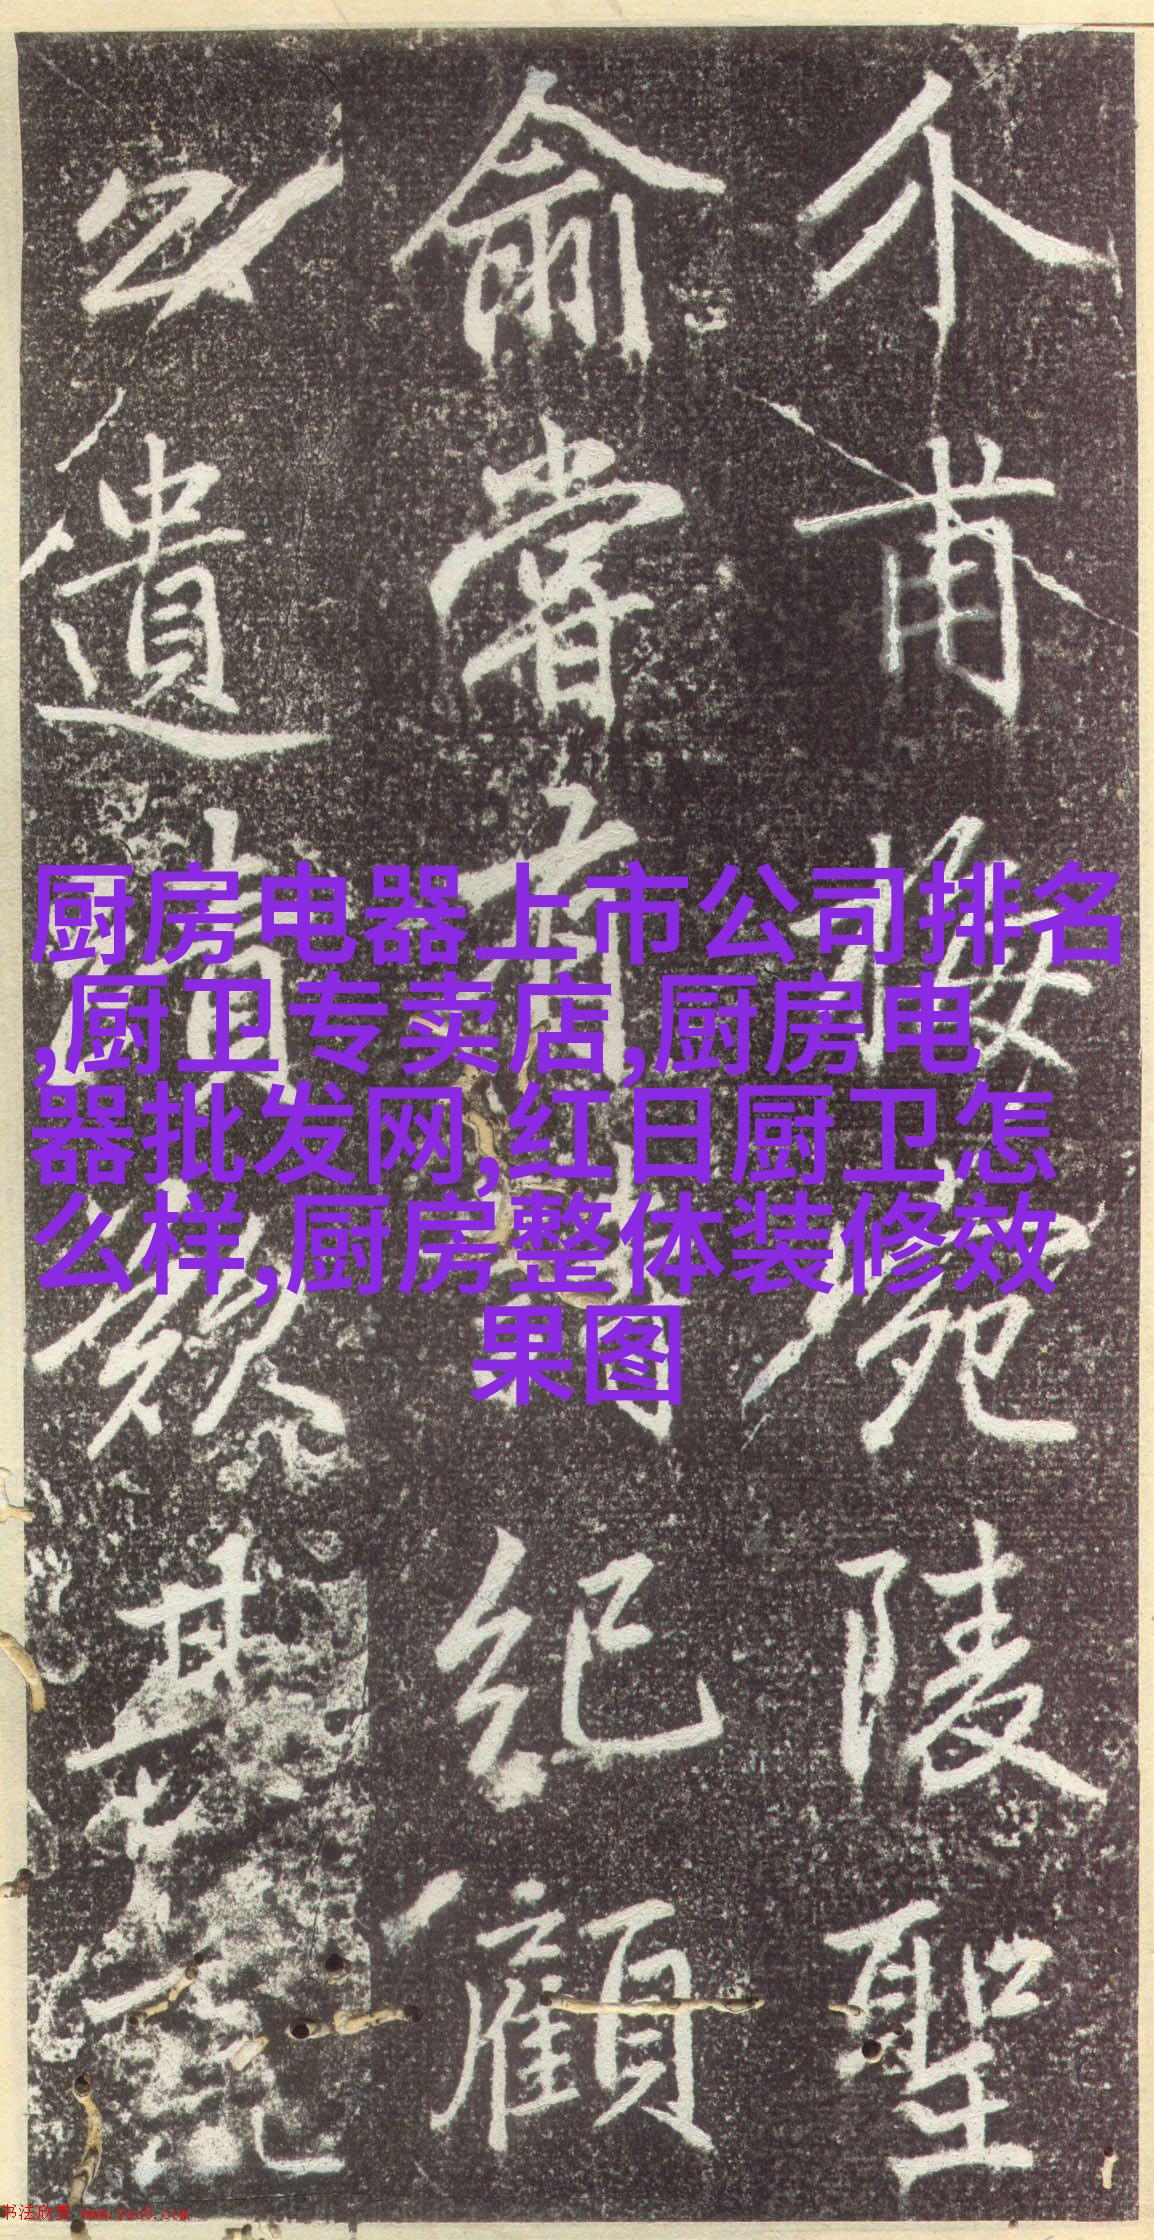 厨房电器上市公司排名
,厨卫专卖店,厨房电
器批发网,红日厨卫怎
么样,厨房整体装修效
果图
介甫宛陵聖
俞嘗有詩紀顧
公遺其
书法欣赏 www.yac8.com